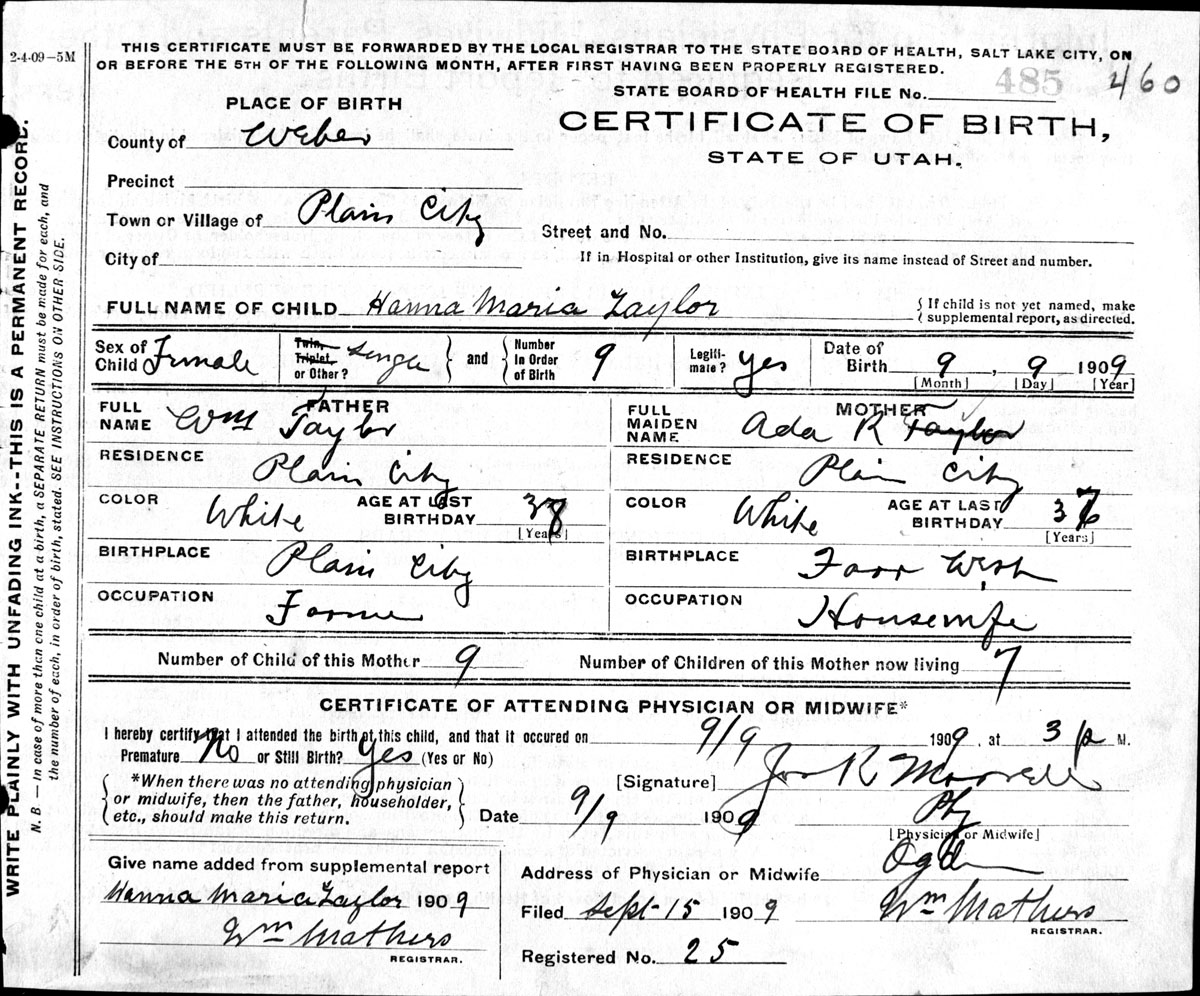 2-4-09-5M
THIS CERTIFICATE MUST BE FORWARDED BY THE LOCAL REGISTRAR TO THE STATE BOARD OF HEALTH, SALT LAKE CITY, ON
OR BEFORE THE 5TH OF THE FOLLOWING MONTH, AFTER FIRST HAVING BEEN PROPERLY REGISTERED.
STATE BOARD OF HEALTH FILE No. 485 460
PLACE OF BIRTH
CERTIFICATE OF BIRTH,
STATE OF UTAH.
County of Weber
Precinct
Town or Village of Plain City
Street and No.
City of
If in Hospital or other Institution, give its name instead of Street and number.
FULL NAME OF CHILD Hanna Maria Taylor { If child is not yet named, make
supplemental report, as directed.
Sex of Child Female Twin, Triplet, or Other? Single } and { Number in Order of Birth 9 Legiti- mate? Yes Date of Birth 9, 9 1909
[Month] [Day] [Year]
FATHER
FULL NAME Wm Taylor
RESIDENCE Plain City
COLOR White AGE AT LAST BIRTHDAY 38
[Years]
BIRTHPLACE Plain City
OCCUPATION Farmer
MOTHER
FULL MAIDEN NAME Ada R Taylor
RESIDENCE Plain City
COLOR White AGE AT LAST BIRTHDAY
[Years]
BIRTHPLACE Farr West
OCCUPATION Housewife
Number of Child of this Mother 9 Number of Children of this Mother now living 7
CERTIFICATE OF ATTENDING PHYSICIAN OR MIDWIFE*
I hereby certify that I attended the birth of this child, and that it occured on 9/9 1909, at 3 p M.
Premature No or Still Birth? Yes (Yes or No)
*When there was no attending physician
or midwife, then the father, householder,
etc., should make this return.
[Signature] Jno R Morrell
Date 9/9 1909 Phy
[Physician or Midwife]
Give name added from supplemental report
Hanna Maria Taylor 1909
Wm Mathers
REGISTRAR.
Address of Physician or Midwife Ogden
Filed Sept 15 1909 Wm Mathers
REGISTRAR.
Registered No. 25
WRITE PLAINLY WITH UNFADING INK--THIS IS A PERMANENT RECORD.
N. B. — In case of more than one child at a birth, a SEPARATE RETURN must be made for each, and
the number of each, in order of birth, stated. SEE INSTRUCTIONS ON OTHER SIDE.